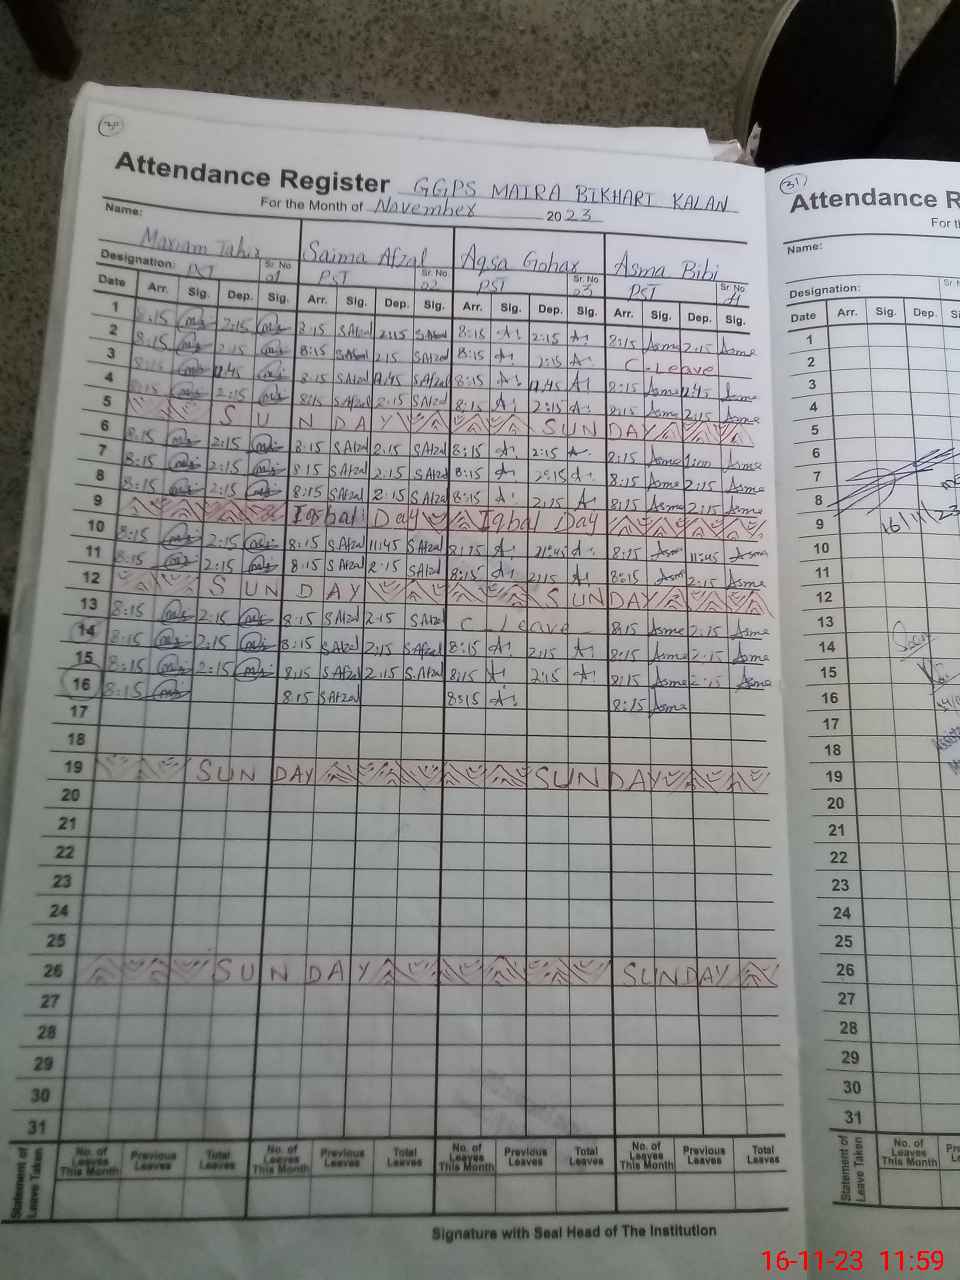 Attendance Register GGPS MAIRA BIKHARI KALAN
For the Month of November 2023
Name:
Mariam Tahir Saima Afzal Aqsa Gohar Asma Bibi
Designation: PST Sr. No 01 PST Sr. No. 02 PST Sr. No 03 PST Sr. No 4
Date Arr. Sig. Dep. Sig. Arr. Sig. Dep. Sig. Arr. Sig. Dep. Sig. Arr. Sig. Dep. Sig.
1 8:15 2:15 8:15 SAfzal 2:15 SAfzal 8:15 2:15 8:15 Asma 2:15 Asma
2 8:15 2:15 8:15 SAfzal 2:15 SAfzal 8:15 2:15 C-Leave
3 8:15 8:15 SAfzal SAfzal 8:15 Asma Asma
4 8:15 2:15 8:15 SAfzal 2:15 SAfzal 8:15 2:15 8:15 Asma 2:15 Asma
5 SUNDAY SUNDAY
6 8:15 2:15 8:15 SAfzal 2:15 SAfzal 8:15 2:15 Asma Asma
7 8:15 2:15 8:15 SAfzal 2:15 SAfzal 8:15 8:15 Asma 2:15 Asma
8 8:15 2:15 8:15 SAfzal 2:15 SAfzal 8:15 2:15 8:15 Asma 2:15 Asma
9 Iqbal Day Iqbal Day
10 8:15 2:15 8:15 SAfzal 11:45 SAfzal 8:15 8:15 Asma 11:45 Asma
11 8:15 2:15 8:15 SAfzal 2:15 SAfzal 8:15 2:15 8:15 Asma 2:15 Asma
12 SUNDAY SUNDAY
13 8:15 2:15 8:15 SAfzal 2:15 SAfzal C Leave 8:15 Asma 2:15 Asma
14 8:15 2:15 8:15 SAfzal 2:15 SAfzal 8:15 2:15 8:15 Asma 2:15 Asma
15 8:15 2:15 8:15 SAfzal 2:15 S.Afzal 8:15 2:15 8:15 Asma 2:15 Asma
16 8:15 8:15 SAfzal 8:15 8:15 Asma
17
18
19 SUNDAY SUNDAY
20
21
22
23
24
25
26 SUNDAY SUNDAY
27
28
29
30
31
Statement of Leave Taken
No. of Leaves This Month Previous Leaves Total Leaves No. of Leaves This Month Previous Leaves Total Leaves No. of Leaves This Month Previous Leaves Total Leaves No. of Leaves This Month Previous Leaves Total Leaves
Signature with Seal Head of The Institution
31
Attendance R
For th
Name:
Designation:
Date Arr. Sig. Dep.
1
2
3
4
5
6
7
8
9 16/11/23
10
11
12
13
14
15
16
17
18
19
20
21
22
23
24
25
26
27
28
29
30
31
Statement of Leave Taken
No. of Leaves This Month
16-11-23 11:59